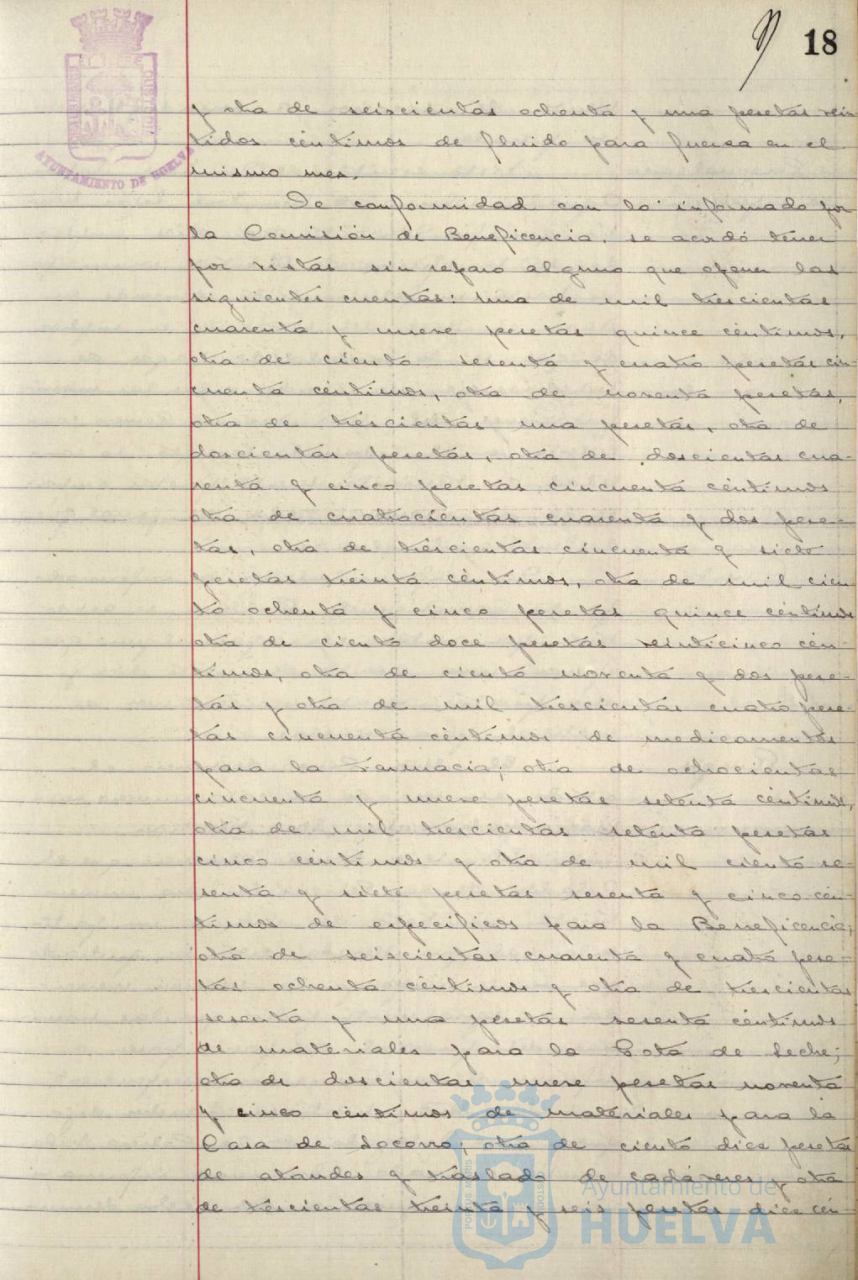 18
y otra de seiscientas ochenta y una pesetas vein-
tidos céntimos de fluido para fuerza en el
mismo mes.
De conformidad con lo informado por
la Comisión de Beneficencia, se acordó tener
por vistas sin reparo alguno que oponer las
siguientes cuentas: una de mil trescientas
cuarenta y nueve pesetas quince céntimos,
otra de ciento sesenta y cuatro pesetas cin-
cuenta céntimos, otra de noventa pesetas,
otra de trescientas una pesetas, otra de
doscientas pesetas, otra de doscientas cua-
renta y cinco pesetas cincuenta céntimos
otra de cuatrocientas cuarenta y dos pese-
tas, otra de trescientas cincuenta y siete
pesetas treinta céntimos, otra de mil cien-
to ochenta y cinco pesetas quince céntimos
otra de ciento doce pesetas veinticinco cén-
timos, otra de ciento noventa y dos pese-
tas y otra de mil trescientas cuatro pese-
tas cincuenta céntimos de medicamentos
para la Farmacia; otra de ochocientas
cincuenta y nueve pesetas setenta céntimos,
otra de mil trescientas setenta pesetas
cinco céntimos y otra de mil ciento se-
senta y siete pesetas sesenta y cinco cén-
timos de específicos para la Beneficencia;
otra de seiscientas cuarenta y cuatro pese-
tas ochenta céntimos y otra de trescientas
sesenta y una pesetas sesenta céntimos
de materiales para la Gota de Leche;
otra de doscientas nueve pesetas noventa
y cinco céntimos de materiales para la
Casa de Socorro; otra de ciento diez pesetas
de ataudes y traslado de cadáveres y otra
de trescientas treinta y seis pesetas diez cén-
AYUNTAMIENTO DE HUELVA
Ayuntamiento de
HUELVA